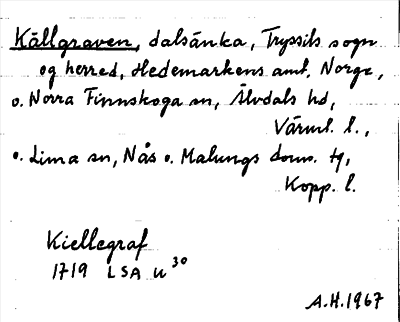 Källgraven, dalsänka, Tryssils sogn
og herred, Hedemarkens amt, Norge,
o. Norra Finnskoga sn, Älvdals hd,
Värml. l.,
o. Lima sn, Nås o. Malungs doms. tg,
Kopp. l.
Kiellegraf
1719 LSA U 30
A.H. 1967